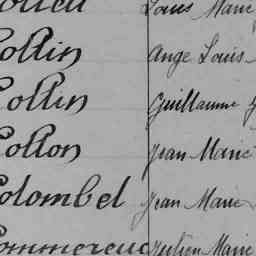 Louis Marie
Collin Ange Louis
Collin Guillaume
Collon Jean Marie
Colombel Jean Marie
Commereuc Julien Marie